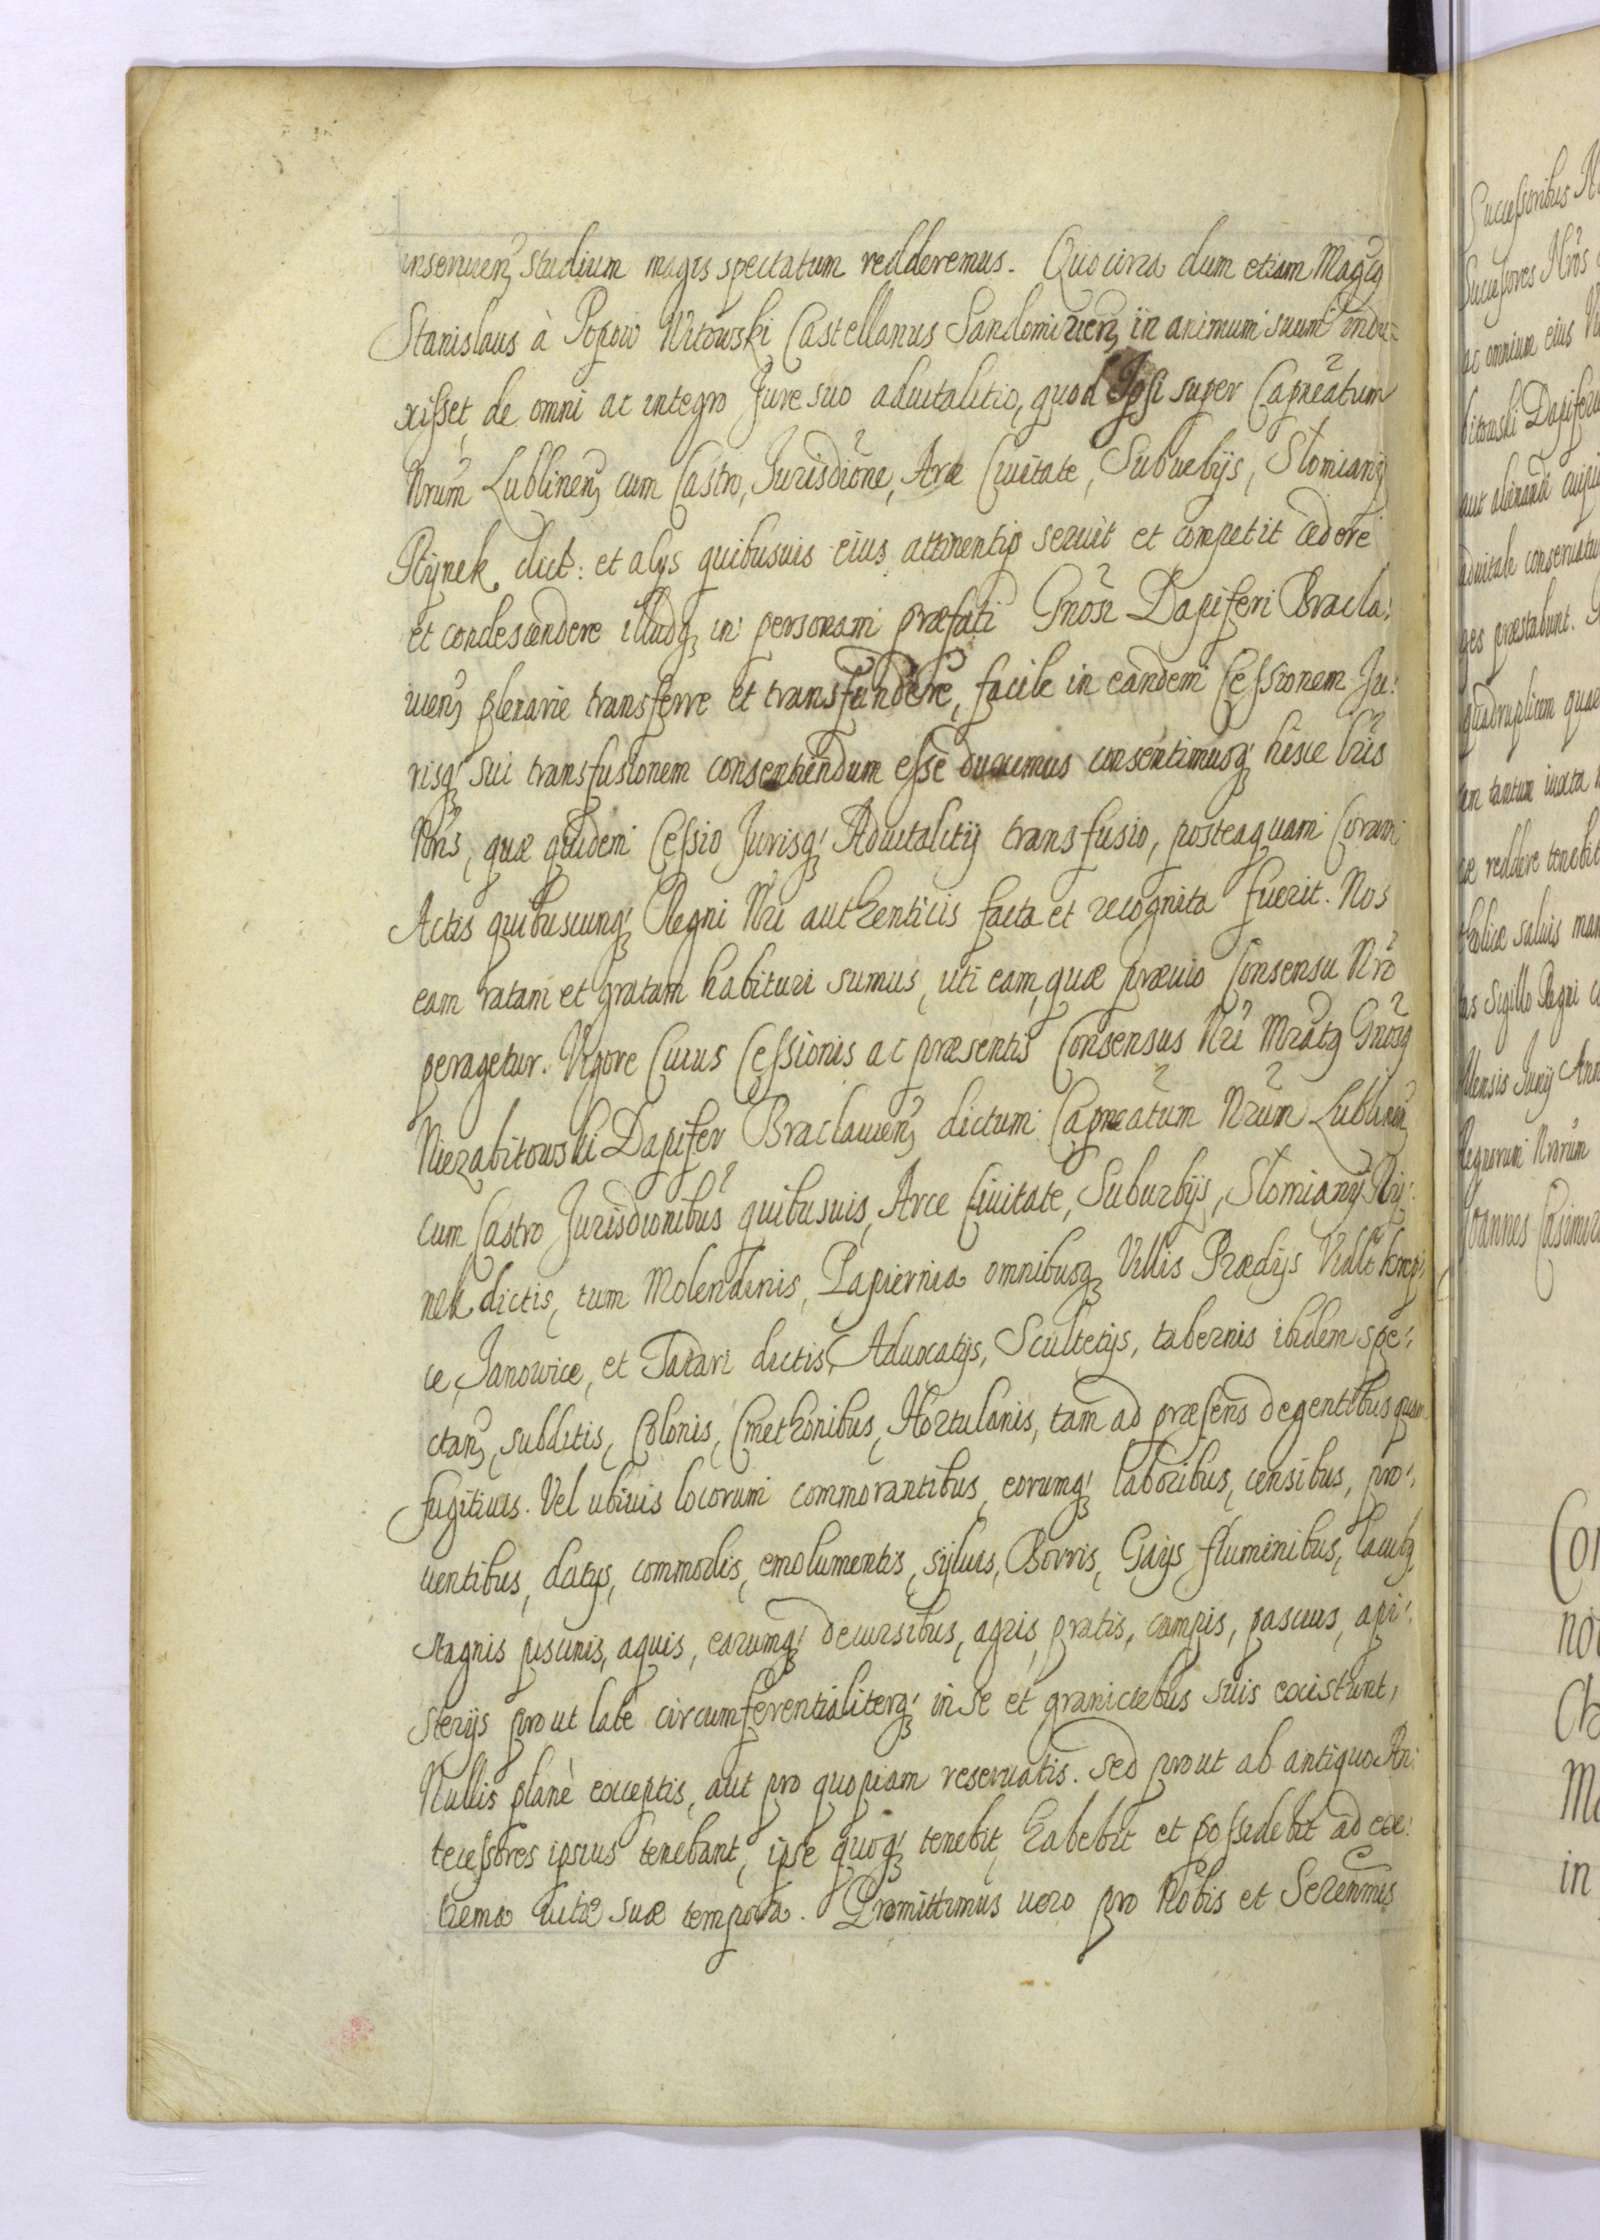 inseruien studium magis spectatum redderemus. Quocirca dum etiam Magcq
Stanislaus à Popow Witowski Castellanus Sandomirien in animum suum indu-
xisset, de omni ac integro Jure suo aduitalitio, quod Ipsi super Capneatum
Nrum Lublinen cum Castro, Jurisdione, Arce Ciuitate, Suburbijs, Slomiany
Rÿnek dict: et alys quibusuis eius attinentijs seruit et competit cedere
et condescendere illudq in personam præfati Gnosi Dapiferi Bracla-
uien plenarie transferre et transfundere, facile in eandem Cessionem Ju-
risq sui transfusionem consentiendum esse duximus consentimusq hisce Lris
Nris, quæ quidem Cessio Jurisq Aduitalitij transfusio, posteaquam Coram
Actis quibuscunq Regni Nri authenticis facta et recognita fuerit. Nos
eam ratam et gratam habituri sumus, uti eam, quæ præuio Consensu Nro
peragetur. Vigore Cuius Cessionis ac præsentis Consensus Nri Mratq Gnosq
Niezabitowski Dapifer Braclauien dictum Capneatum Nrum Lublinen
cum Castro Jurisdionibus quibusuis, Arce Ciuitate, Suburbijs, Slomiany Ry-
nek dictis, tum Molendinis, Papiernia omnibusq Villis Prædijs
ce, Janowice, et Tatari dictis, Aduocatijs, Scultetijs, tabernis ibidem spe-
ctan, subditis, Colonis, Cmethonibus, Hortulanis, tam ad præsens degentibus quam
fugitiuis. Vel ubiuis locorum commorantibus, eorumq laboribus, censibus, pro-
uentibus, datijs, commodis, emolumentis, syluis, Borris, Gays fluminibus, lacubq
stagnis piscinis, aquis, earumq decursibus, agris, pratis, campis, pascuis, api-
sterijs prout late circumferentialiterq in se et graniciebus suis existunt,
Nullis planè exceptis, aut pro quopiam reseruatis. Sed prout ab antiquo An-
tecessores ipsius tenebant, ipse quoq tenebit, habebit et possidebit ad ex-
trema uitæ suæ tempora. Promittimus uero pro Nobis et Serennmis
Successoribus
Successores Nros
ac omnium eius
bitowski Dapiferu
aut alienandi cuipi
aduitale conseruatu
ges præstabunt.
quadruplicem quar
em tantum iuxta
æ reddere tenebit
tholicæ saluis
as Sigillo Regni
Mensis Junij Ann
Regnorum Nrorum
Joannes Casimir
Con
no
Ch
in